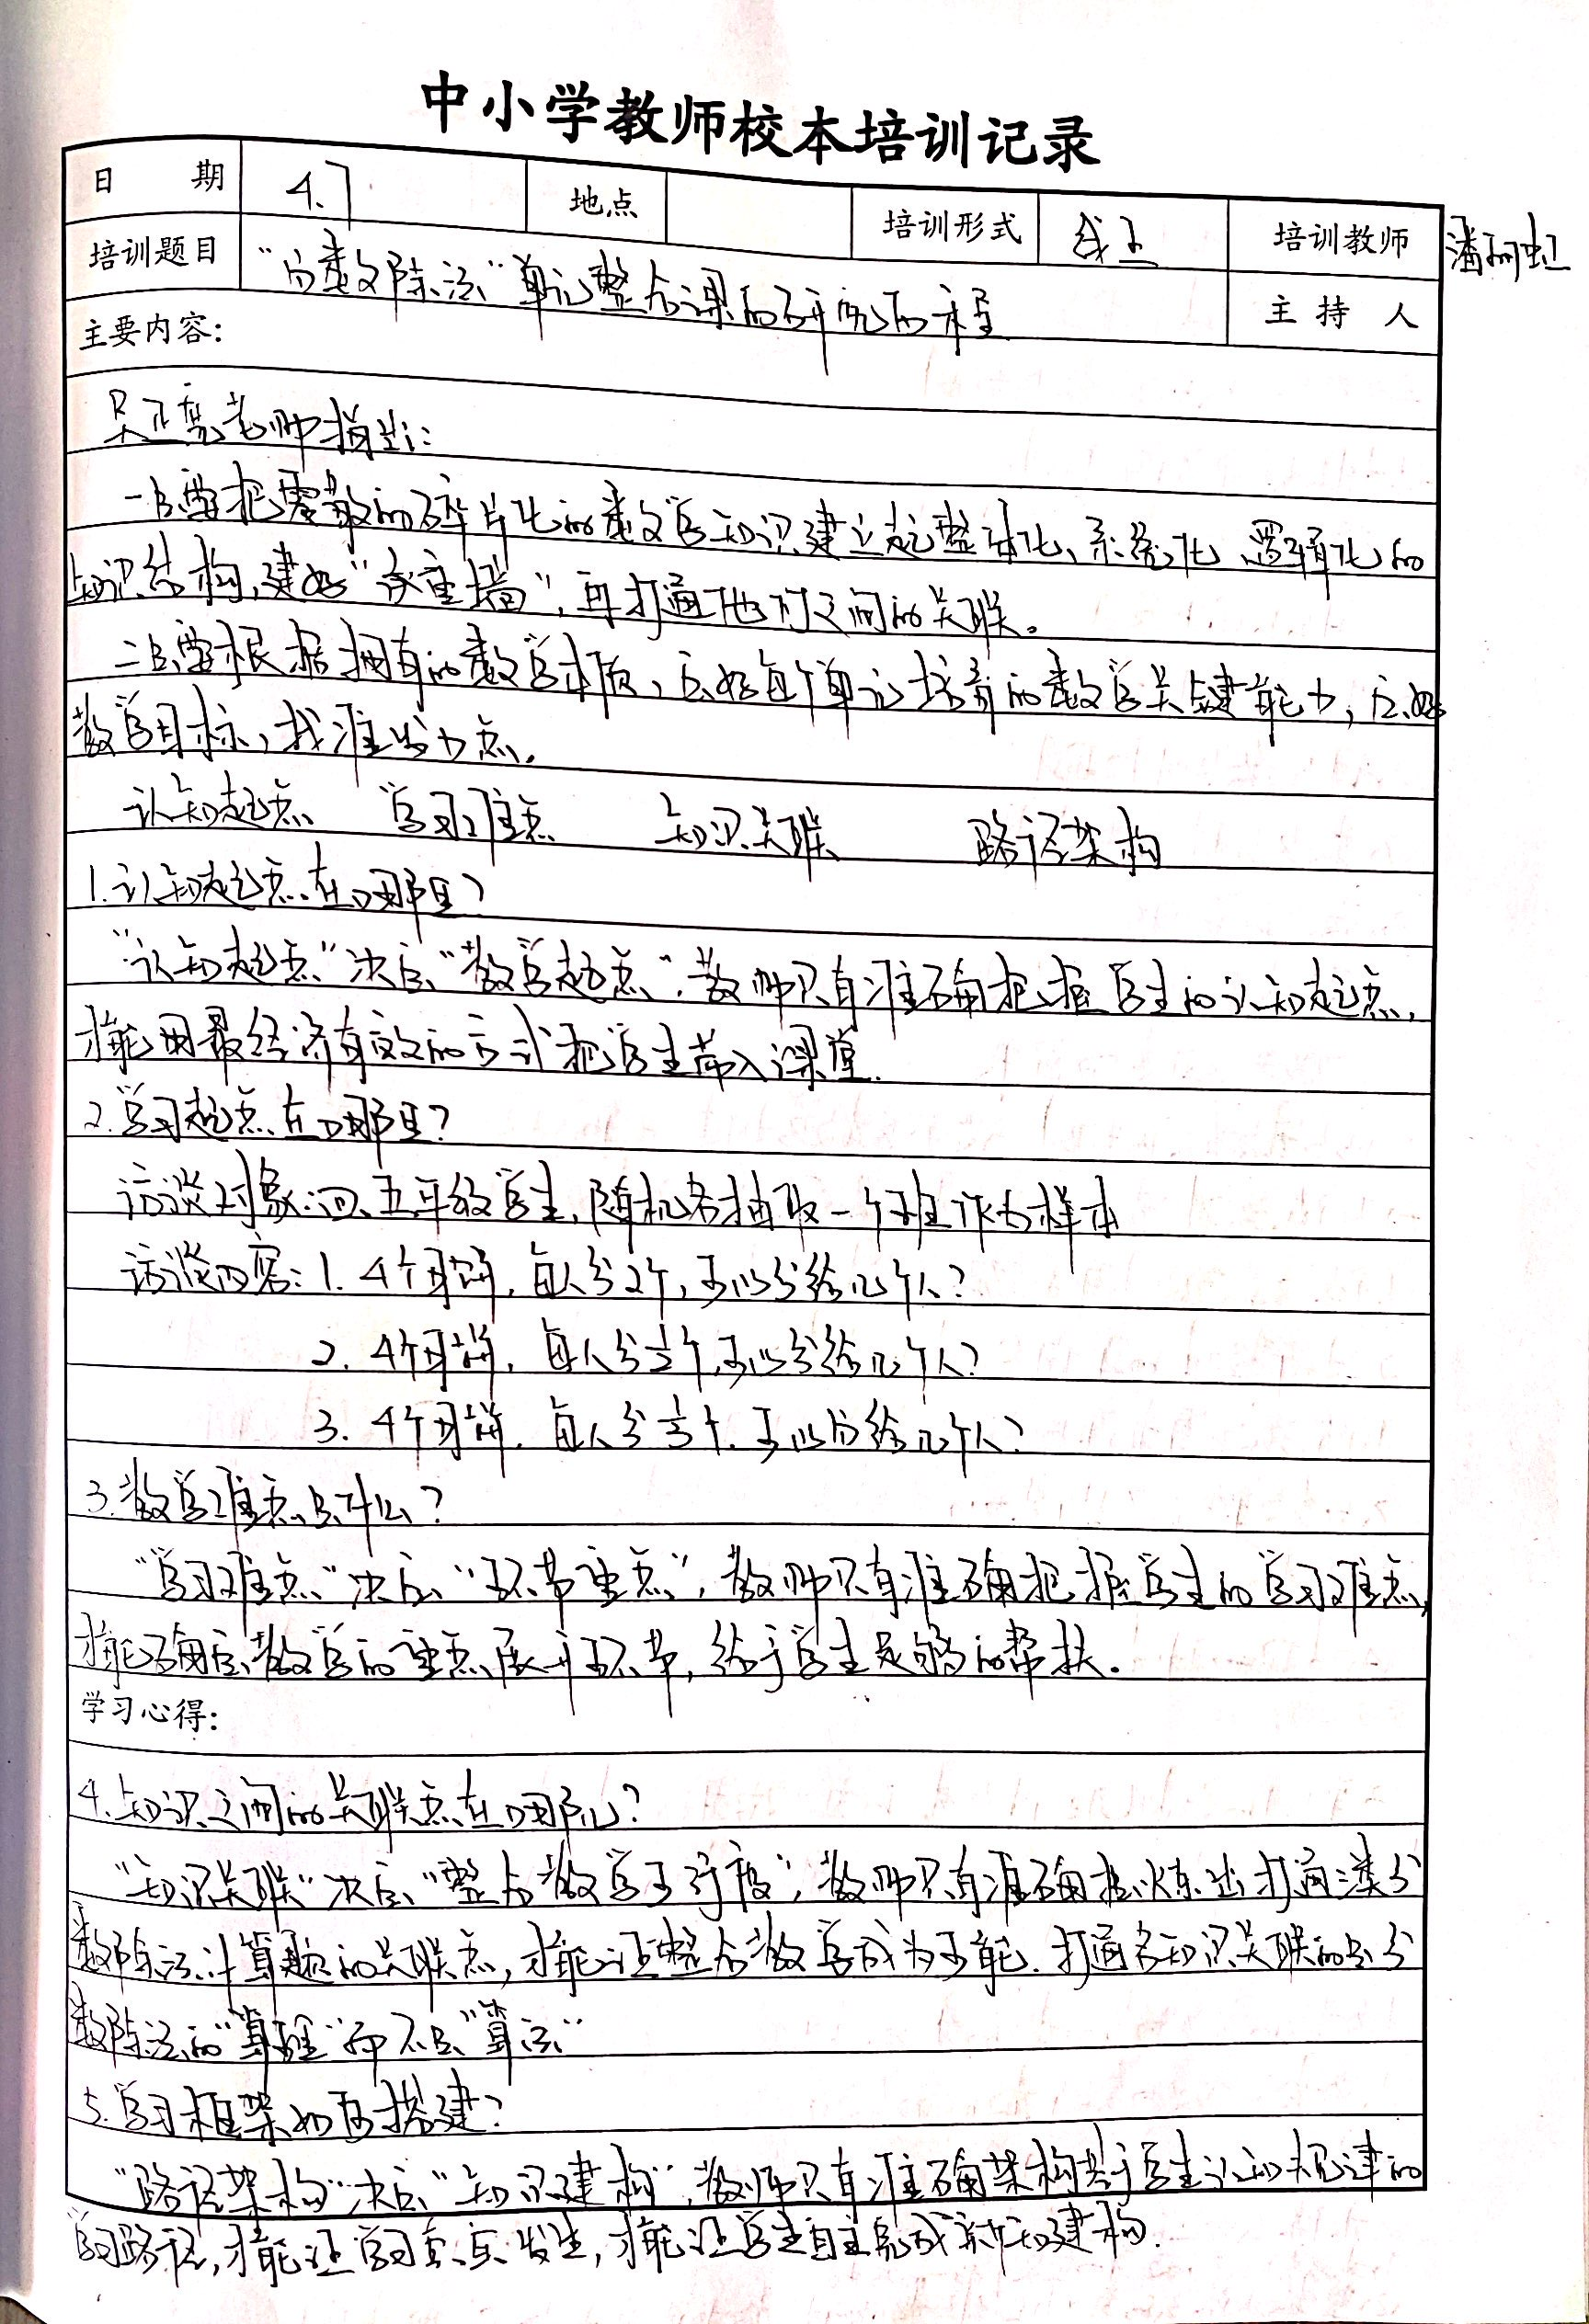 中小学教师校本培训记录
日 期 4.7 地点 培训形式 线上 培训教师 潘丽虹
培训题目 "分数除法"单元整合课的研究历程 主持人
主要内容:
吴正宪老师指出:
一是要把零散的碎片化的数学知识建立起整体化、系统化、逻辑化的
知识结构,建好"承重墙",再打通他们之间的关联。
二是要根据拥有的数学本质,定好每个单元培育的数学关键能力,定好
教学目标,找准发力点。
认知起点 学习难点 知识关联 路径架构
1.认知起点在哪里?
"认知起点"决定"教学起点",教师只有准确把握学生的认知起点,
才能用最经济有效的方式把学生带入课堂.
2.学习起点在哪里?
访谈对象:四、五年级学生,随机各抽取一个班作为样本
访谈内容:1. 4个月饼,每人分2个,可以分给几个人?
2. 4个月饼,每人分½个,可以分给几个人?
3. 4个月饼,每人分⅓个.可以分给几个人?
3.教学难点是什么?
"学习难点"决定"环节重点",教师只有准确把握学生的学习难点,
才能确定教学的重点展开环节,给予学生足够的帮扶.
学习心得:
4.知识之间的关联点在哪儿?
"知识关联"决定"整合教学可行度",教师只有准确提炼出打通类分
数除法计算题的关联点,才能让整合教学成为可能.打通各知识关联的是分
数除法的"算理"而不是"算法"
5.学习框架如何搭建?
"路径架构"决定"知识建构",教师只有准确架构基于学生认知规律的
学习路径,才能让学习真正发生,才能让学生自主完成新知建构.